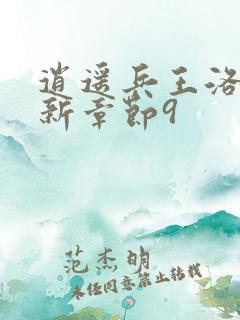 逍遥兵王洛
新章节9
范杰明
未经同意禁止转载